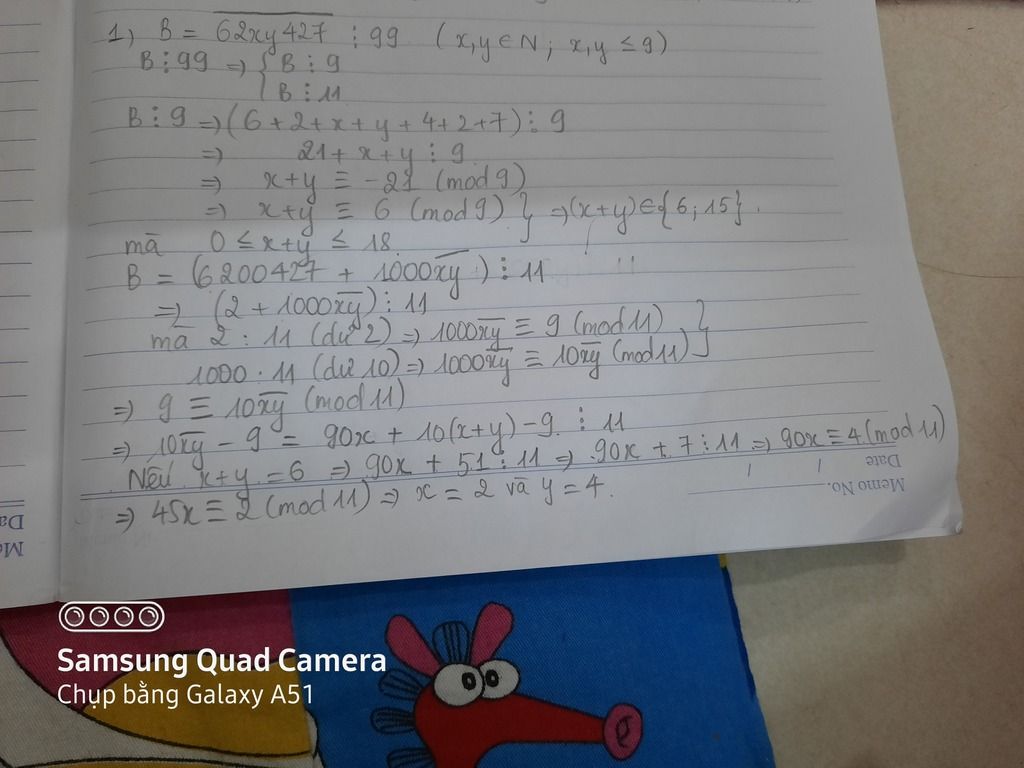 1) B = 62xy427 ⋮ 99 ( x,y ∈ N ; x,y ≤ 9 )
B ⋮ 99 => { B ⋮ 9
B ⋮ 11
B ⋮ 9 => ( 6 + 2 + x + y + 4 + 2 + 7 ) ⋮ 9
=> 21 + x + y ⋮ 9
=> x+y ≡ -21 (mod 9)
=> x+y ≡ 6 (mod 9) } => (x+y) ∈ { 6 ; 15 } .
mà 0 ≤ x+y ≤ 18
B = (6200427 + 1000xy) ⋮ 11
=> (2 + 1000xy) ⋮ 11
mà 2 : 11 (dư 2) => 1000xy ≡ 9 (mod 11) }
1000 : 11 (dư 10) => 1000xy ≡ 10xy (mod 11)
=> 9 ≡ 10xy (mod 11)
=> 10xy - 9 = 90x + 10(x+y) - 9 ⋮ 11
Nếu x+y = 6 => 90x + 51 ⋮ 11 => 90x + 7 ⋮ 11 => 90x ≡ 4 (mod 11)
=> 45x ≡ 2 (mod 11) => x = 2 và y = 4 .
Date
Memo No.
Da
Me
Samsung Quad Camera
Chụp bằng Galaxy A51